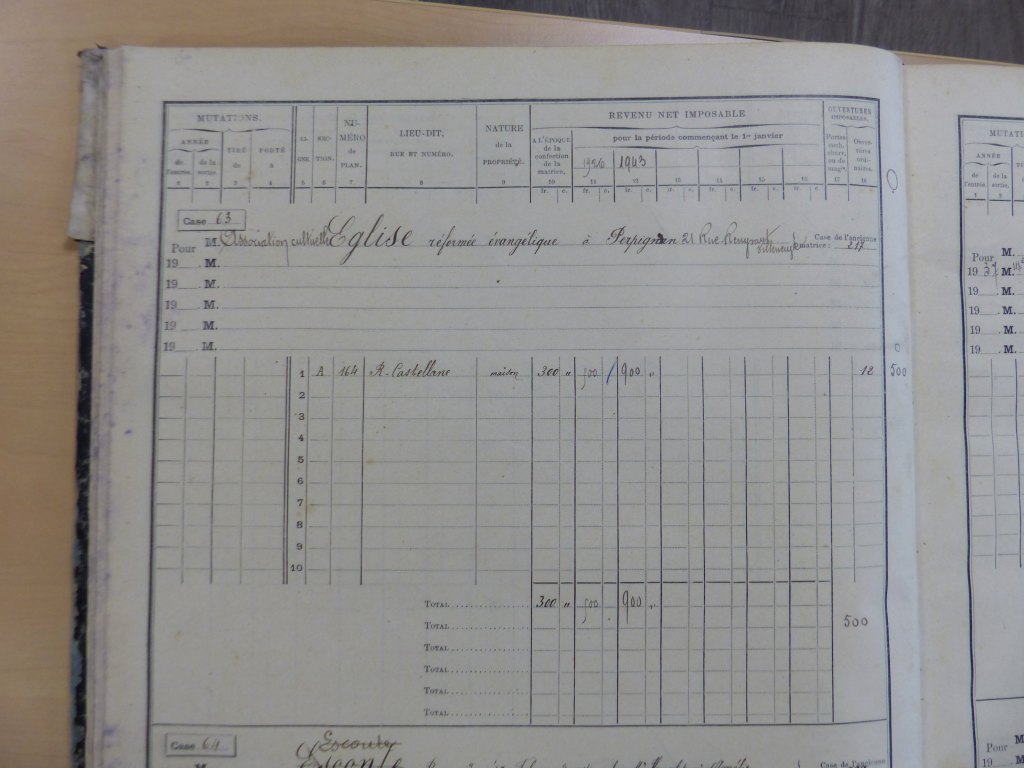 MUTATIONS.
ANNÉE
de l'entrée.
de la sortie.
TIRÉ de
PORTÉ à
LI-GNE
SEC-TION.
NU-MÉRO de PLAN.
LIEU-DIT,
RUE ET NUMÉRO.
NATURE
de la
PROPRIÉTÉ.
REVENU NET IMPOSABLE
A L'ÉPOQUE de la confection de la matrice.
pour la période commençant le 1er janvier
1926 1943
OUVERTURES IMPOSABLES.
Portes coch.
Ouvertures ordinaires.
1 2 3 4 5 6 7 8 9 10 11 12 13 14 15 16 17 18
fr. c. fr. c. fr. c. fr. c. fr. c. fr. c. fr. c.
Case 63
Pour M. Association cultuelle Eglise réformée évangélique à Perpignan 21 Rue
Case de l'ancienne matrice : 217
19 M.
19 M.
19 M.
19 M.
19 M.
0
1 A 164 R. Castellane maison 300 " 500 900 " 12 500
2
3
4
5
6
7
8
9
10
TOTAL 300 " 500 900 "
TOTAL
500
TOTAL
TOTAL
TOTAL
TOTAL
Case 64
Escoute
M.
Case de l'ancienne
MUTATI
ANNÉE
de l'entrée.
de la sortie.
TIRÉ
1 2 3
Pour M.
19 37 M.
19 M.
19 M.
19 M.
19 M.
Pour M.
19 M.